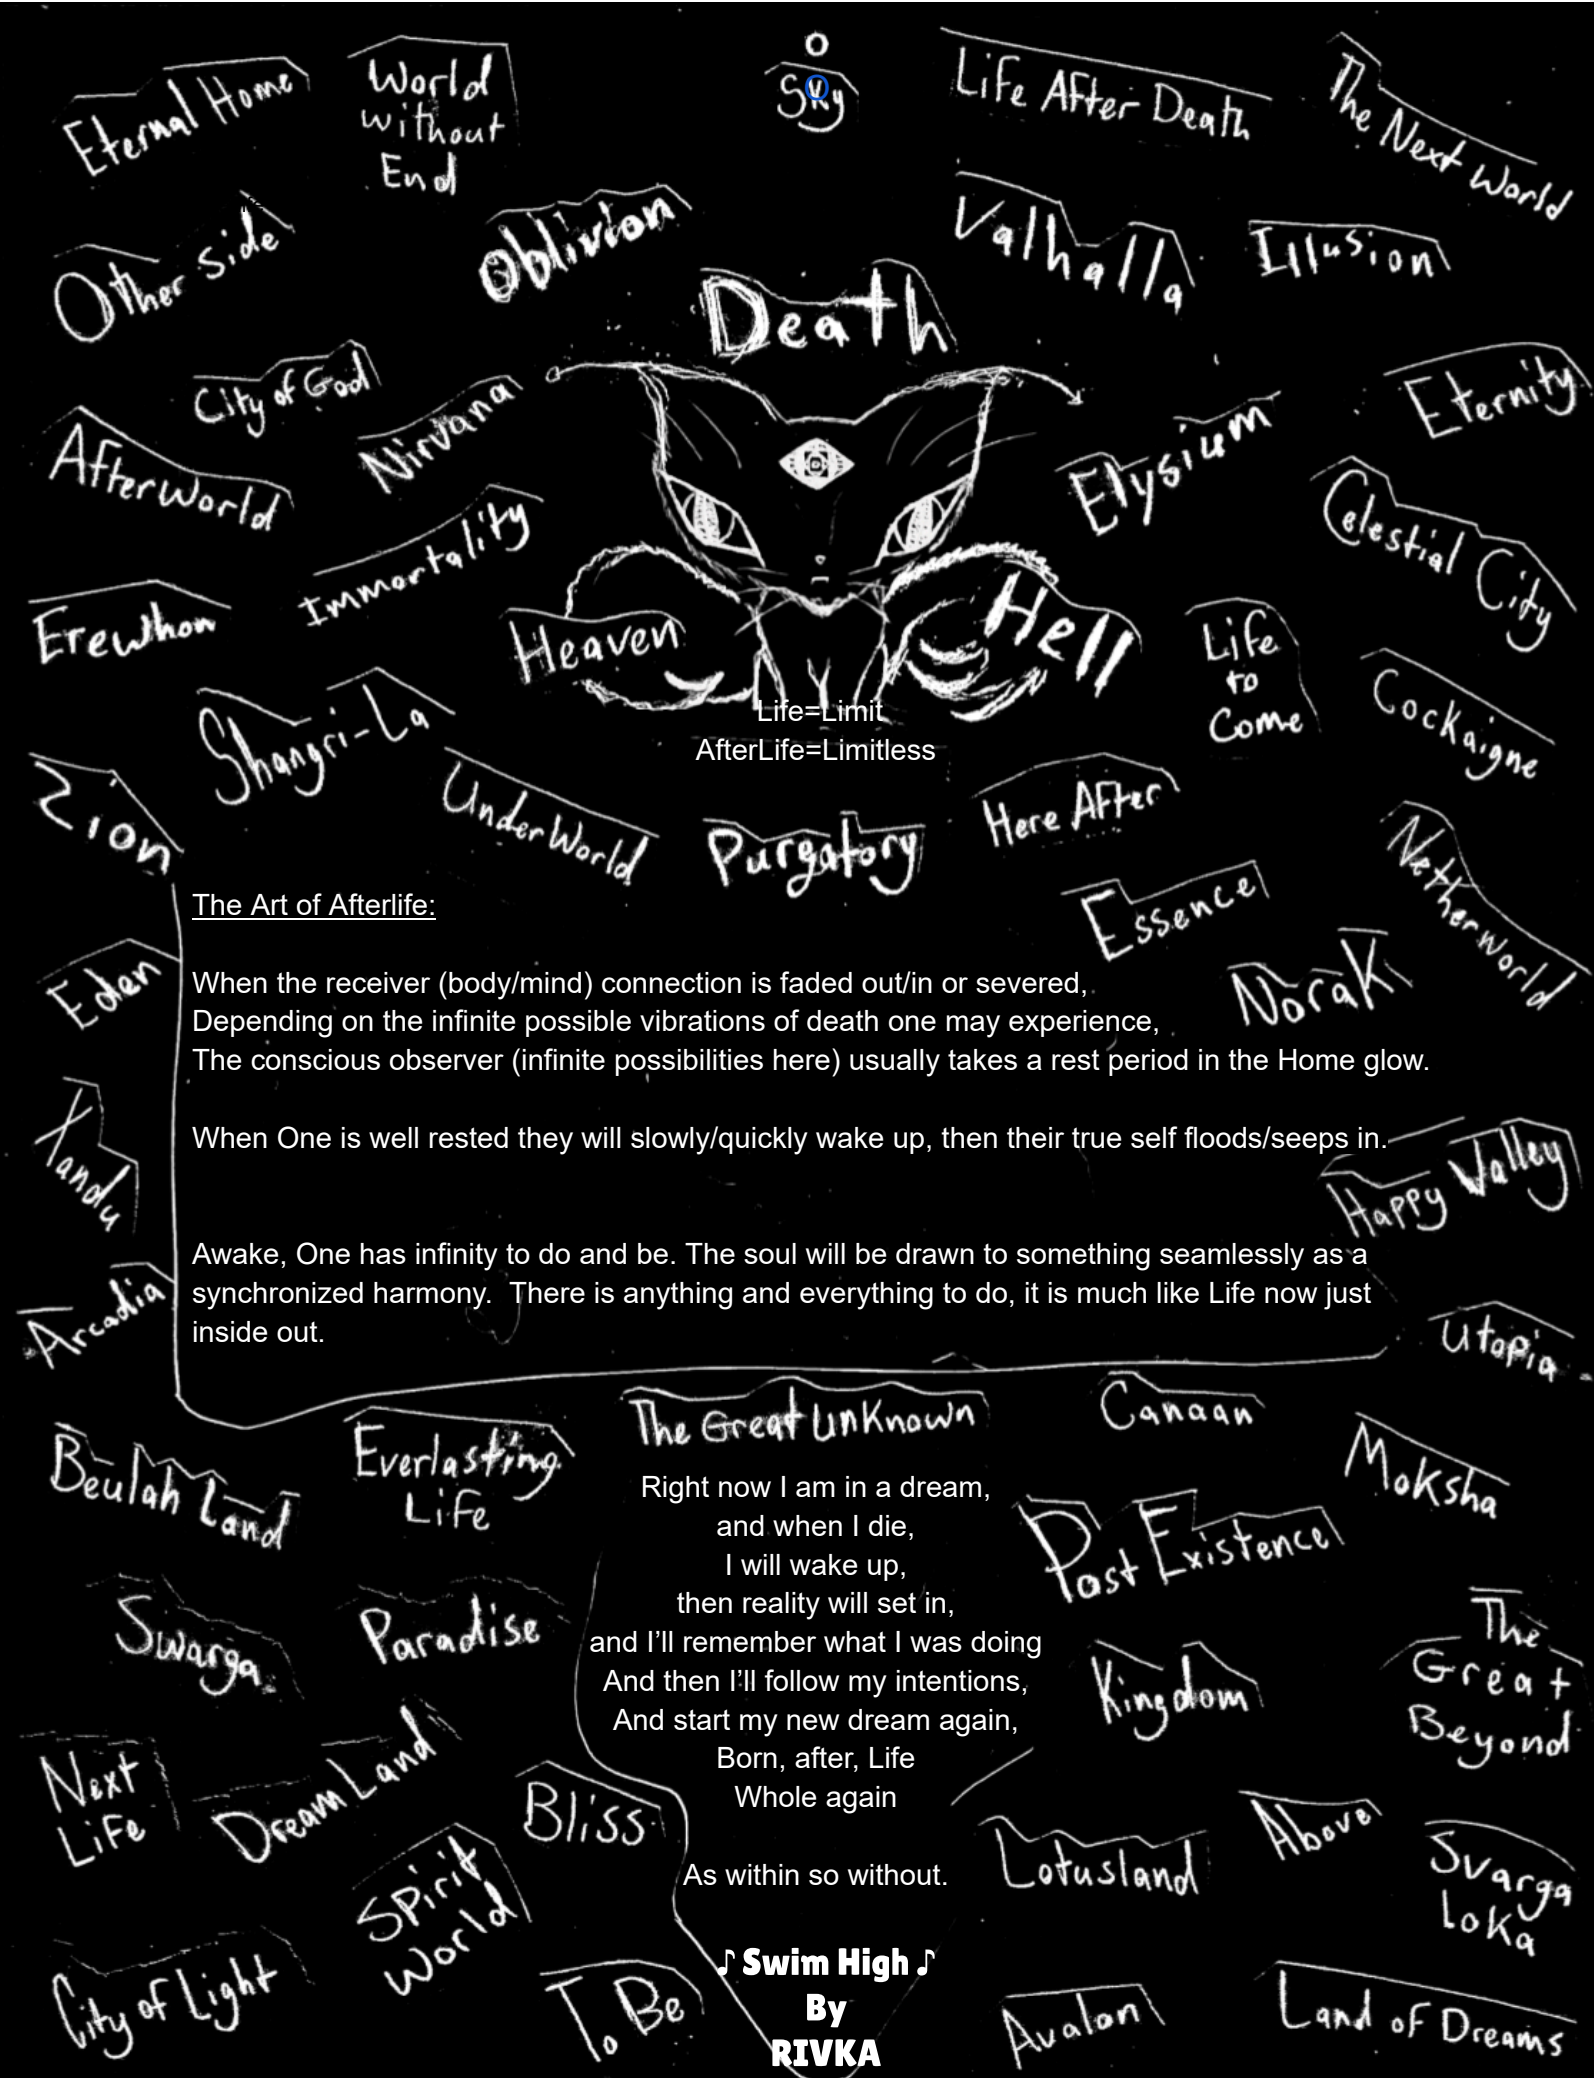 O
Sky
V
Eternal Home
World
without
End
Life After Death
The Next World
Other side
Oblivion
Valhalla
Illusion
Death
City of God
Nirvana
Eternity
AfterWorld
Elysium
Celestial City
Immortality
Erewhon
Heaven
Hell
Life
to
Come
Shangri-La
Cockaigne
Life=Limit
AfterLife=Limitless
Zion
UnderWorld
Purgatory
Here After
NetherWorld
Essence
Norak
The Art of Afterlife:
Eden
When the receiver (body/mind) connection is faded out/in or severed,
Depending on the infinite possible vibrations of death one may experience,
The conscious observer (infinite possibilities here) usually takes a rest period in the Home glow.
Xandu
When One is well rested they will slowly/quickly wake up, then their true self floods/seeps in.
Happy Valley
Arcadia
Awake, One has infinity to do and be. The soul will be drawn to something seamlessly as a
synchronized harmony.  There is anything and everything to do, it is much like Life now just
inside out.
Utopia
The Great Unknown
Canaan
Beulah Land
Everlasting
Life
Moksha
Post Existence
Right now I am in a dream,
and when I die,
I will wake up,
then reality will set in,
and I’ll remember what I was doing
And then I’ll follow my intentions,
And start my new dream again,
Born, after, Life
Whole again
Swarga
Paradise
Kingdom
The
Great
Beyond
Next
Life
Dream Land
Bliss
Above
Lotusland
Svarga
Loka
As within so without.
Spirit
World
City of Light
To Be
♪ Swim High ♪
By
RIVKA
Avalon
Land of Dreams